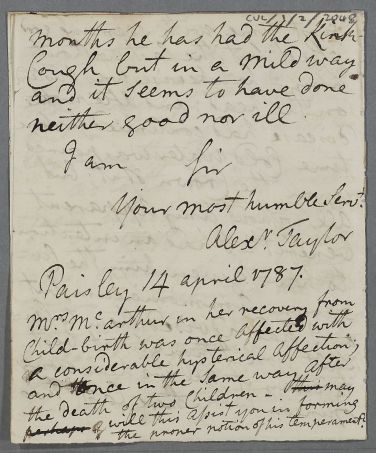 CUL/1/2/2048
months he has had the Kink-
Cough but in a mild way
and it seems to have done
neither good nor ill.
I am Sir
Your most humble Servt.
Alexr. Taylor
Paisley 14 april 1787.
Mrs Mc.arthur in her recovery from
Child-birth was once affected with
a considerable hysterical Affection,
and once in the same way after
the death of two Children – may
will this assist you in forming
the proper notion of his temperamt.